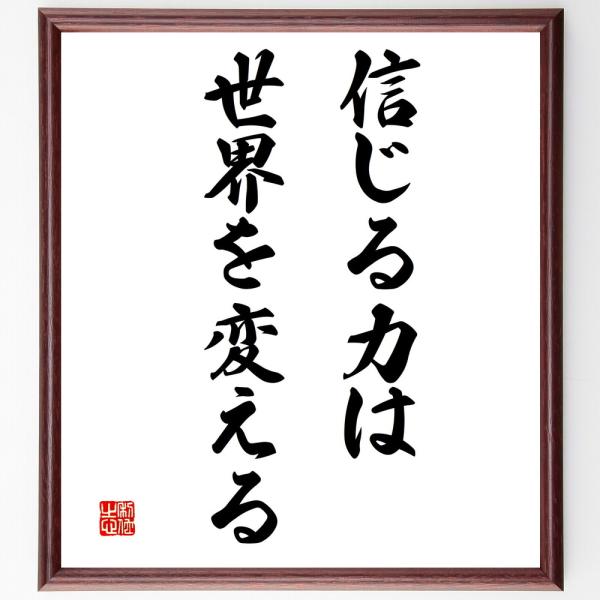 信じる力は
世界を変える